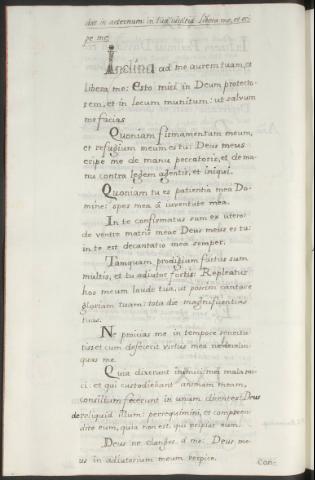 dar in aeternum: in tua iustitia libera me, et eri-
pe me.
Inclina ad me aurem tuam, et
libera me: Esto mihi in Deum protecto-
rem, et in locum munitum: ut salvum
me facias
Quoniam firmamentum meum,
et refugium meum es tu: Deus meus
eripe me de manu peccatoris, et de ma-
nu contra legem agentis, et iniqui.
Quoniam tu es patientia mea Do-
mine: spes mea à iuventute mea.
In te confirmatus sum ex utero:
de ventre matris meae Deus meus es tu:
in te est decantatio mea semper:
Tamquam prodigium factus sum
multis, et tu adiutor fortis: Repleatur
hos meum laude tua, ut possim cantare
gloriam tuam: tota die magnificentias
tuas.
Ne proicias me in tempore senectu-
tis: et cum defecerit virtus mea ne derelin-
quas me.
Quia dixerunt inimici mei mala mi-
ci. et qui custodiebant animam meam,
consilium fecerunt in unum dicentes: Deus
dereliquid illum: persequimini, et compreen-
dite eum, quia non est, qui eripiat eum.
Deus ne elonges à me: Deus me-
us in adiutorium meum respice.
Con-